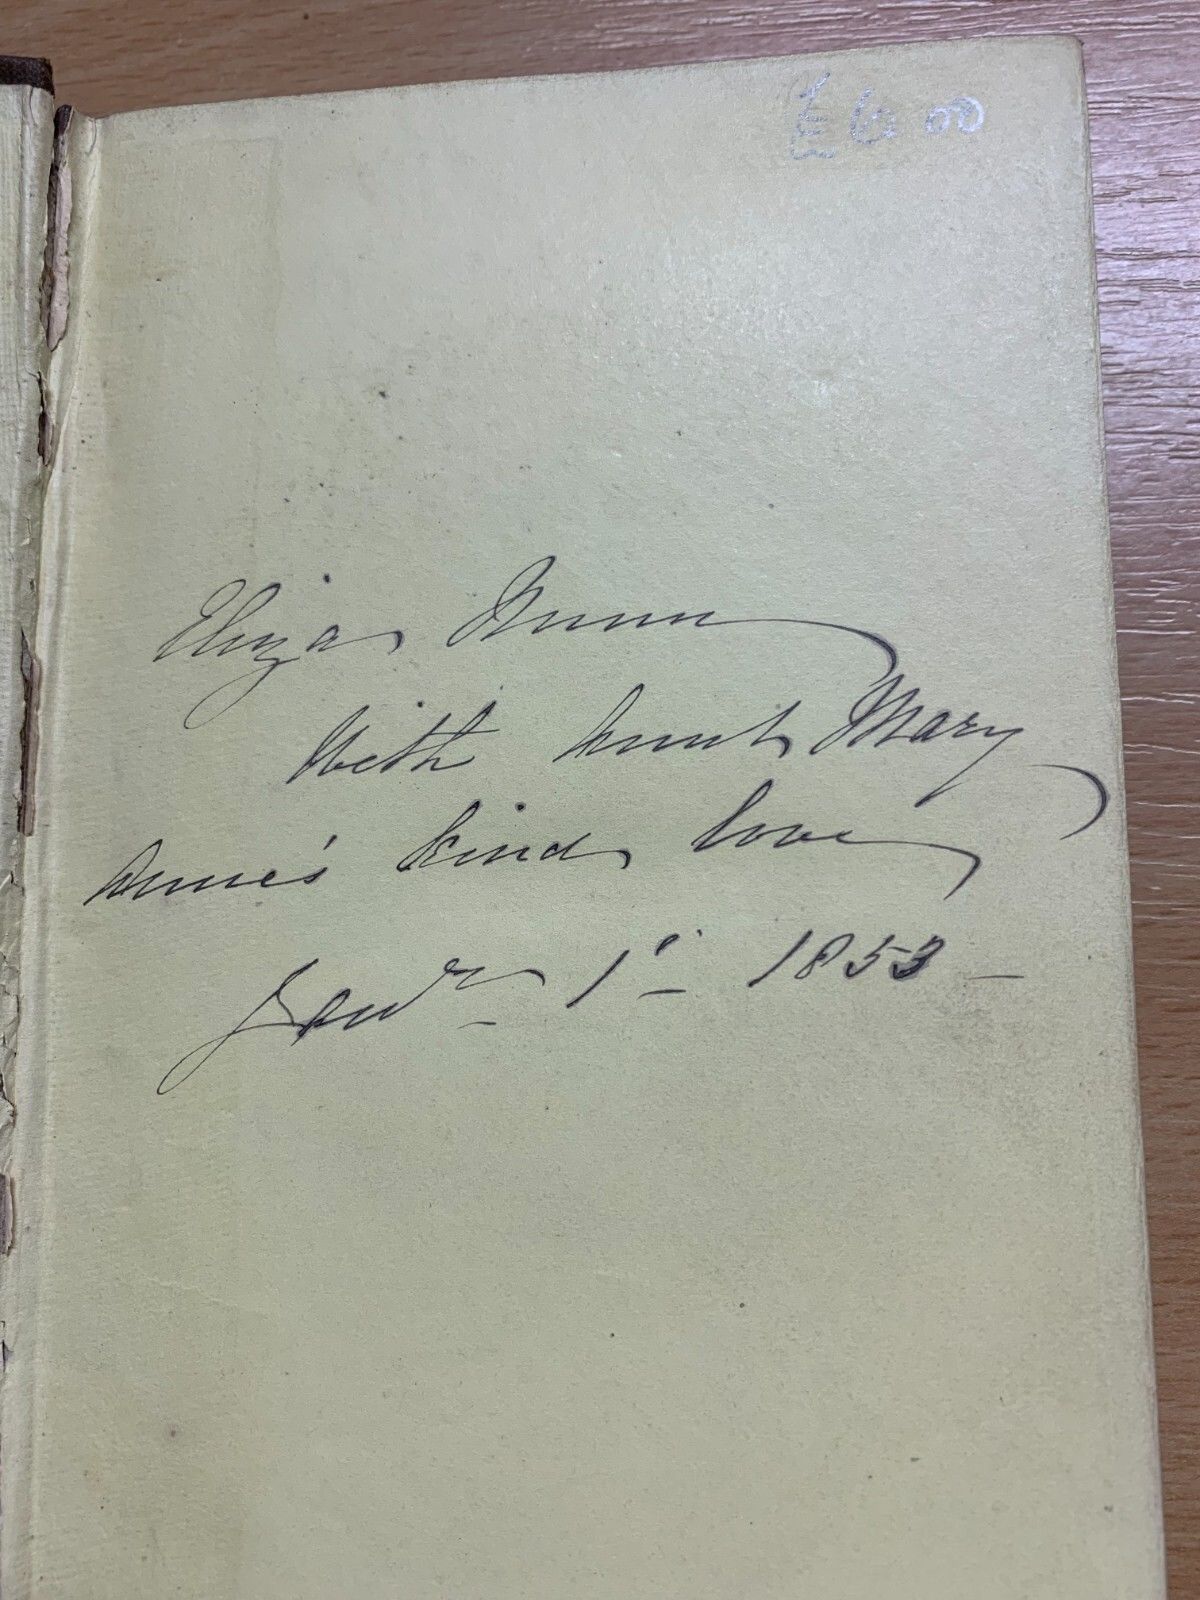 £6.00
Eliza Nunn
With Aunt Mary
Anne's kind love
Jany 1st 1853 –